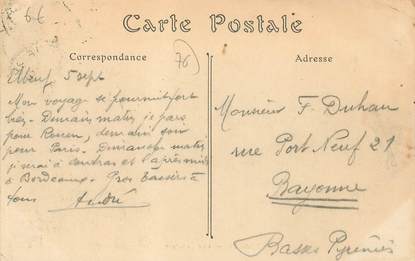 66
Carte Postale
Correspondance
76
Adresse
Elbeuf 5 sept
Mon voyage se poursuit fort
bien. Demain matin je pars
pour Rouen, demain soir
pour Paris. Dimanche matin
je serai à Coutras et l'après midi
à Bordeaux. Gros baisers à
tous André
Monsieur F. Duhau
rue Port Neuf 21
Bayonne
Basses Pyrénées